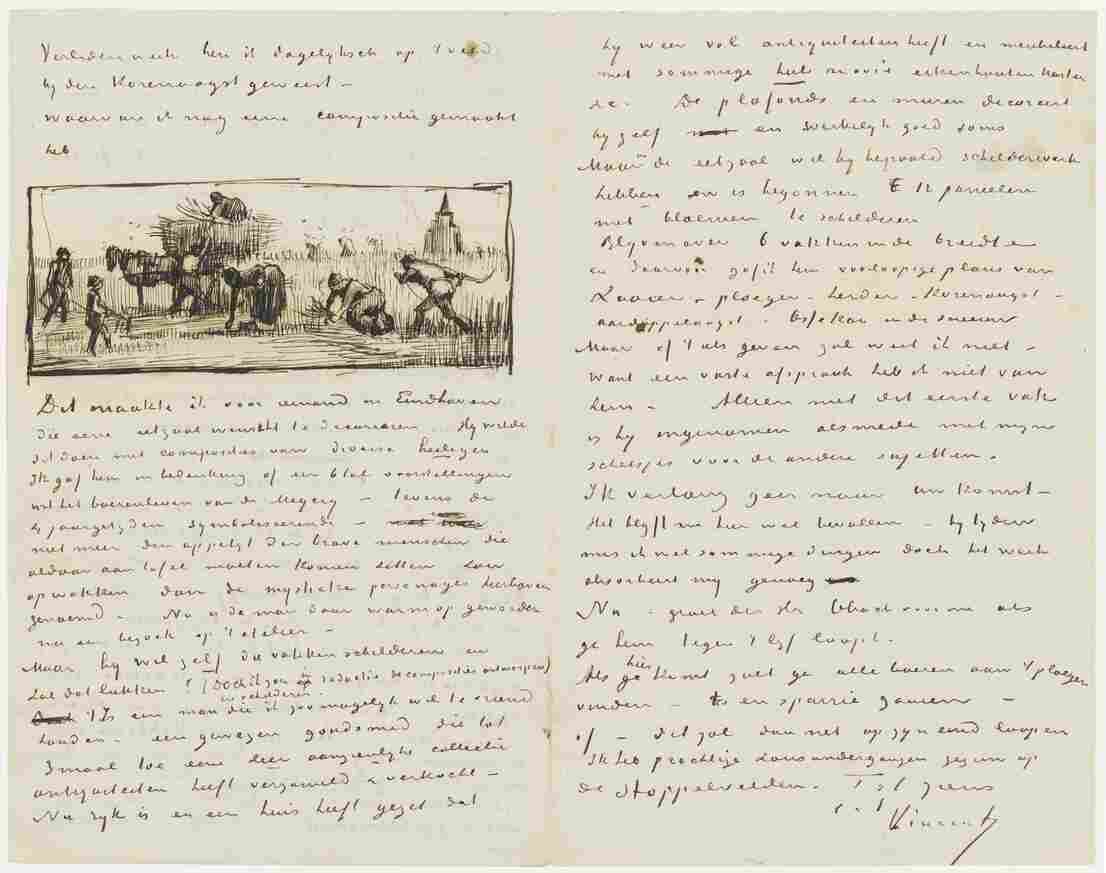 Verleden week ben ik dagelijksch op 't veld
bij den Korenoogst geweest –
waarvan ik nog eene compositie gemaakt
heb
Dit maakte ik voor iemand in Eindhoven
die eene eetzaal wenscht te decoreeren. Hij wilde
dit doen met composities van diverse heiligen
Ik gaf hem in bedenking of een 6tal voorstellingen
uit het boerenleven van de Meyery – tevens de
4 jaargetijden symboliseerende –
niet meer den appetijt der brave menschen die
aldaar aan tafel moeten komen zitten zou
opwekken dan de mystieke personages hierboven
genoemd. Nu is de man daar warm op geworden
na een bezoek op 't atelier –
Maar hij wil zelf die vakken schilderen en
zal dat lukken? (Doch ik zou op reductie de composities ontwerpen)
en schilderen.
't Is een man die ik zoo mogelijk wil te vriend
houden – een gewezen goudsmid die tot
3maal toe eene zeer aanzienlijke collectie
antiquiteiten heeft verzameld & verkocht –
Nu rijk is en een huis heeft gezet dat
hij weer vol antiquiteiten heeft en meubileert
met sommige heele mooie eikenhouten kasten
&c. De plafonds en muren decoreert
hij zelf en werkelijk goed soms
Maar in de eetzaal wil hij bepaald schilderwerk
hebben en is begonnen 12 paneelen
met bloemen te schilderen
Blijven over 6 vakken in de breedte
en daarvoor gaf ik hem voorloopige plans van
Zaaier – ploeger – herder – Korenoogst –
aardappeloogst – Ossekar in de sneeuw
Maar of 't als geven zal weet ik niet –
Want een vaste afspraak heb ik niet van
hem – Alleen met dit eerste vak
is hij ingenomen alsmede met mijn
schetsjes voor de andere sujetten.
Ik verlang zeer naar uw Komst –
Het blijft me hier wel bevallen – bij tijden
mis ik wel sommige dingen doch het werk
absorbeert mij genoeg
Nu – groet den Hr Wisselingh voor me als
ge hem tegen 't lijf loopt.
Als ge hier komt zult ge alle boeren aan 't ploegen
vinden – en sparrie zaaien –
of – dit zal dan net op zijn eind loopen
Ik heb prachtige zonsondergangen gezien op
de Stoppelvelden. Tot ziens
t. à t.
Vincent